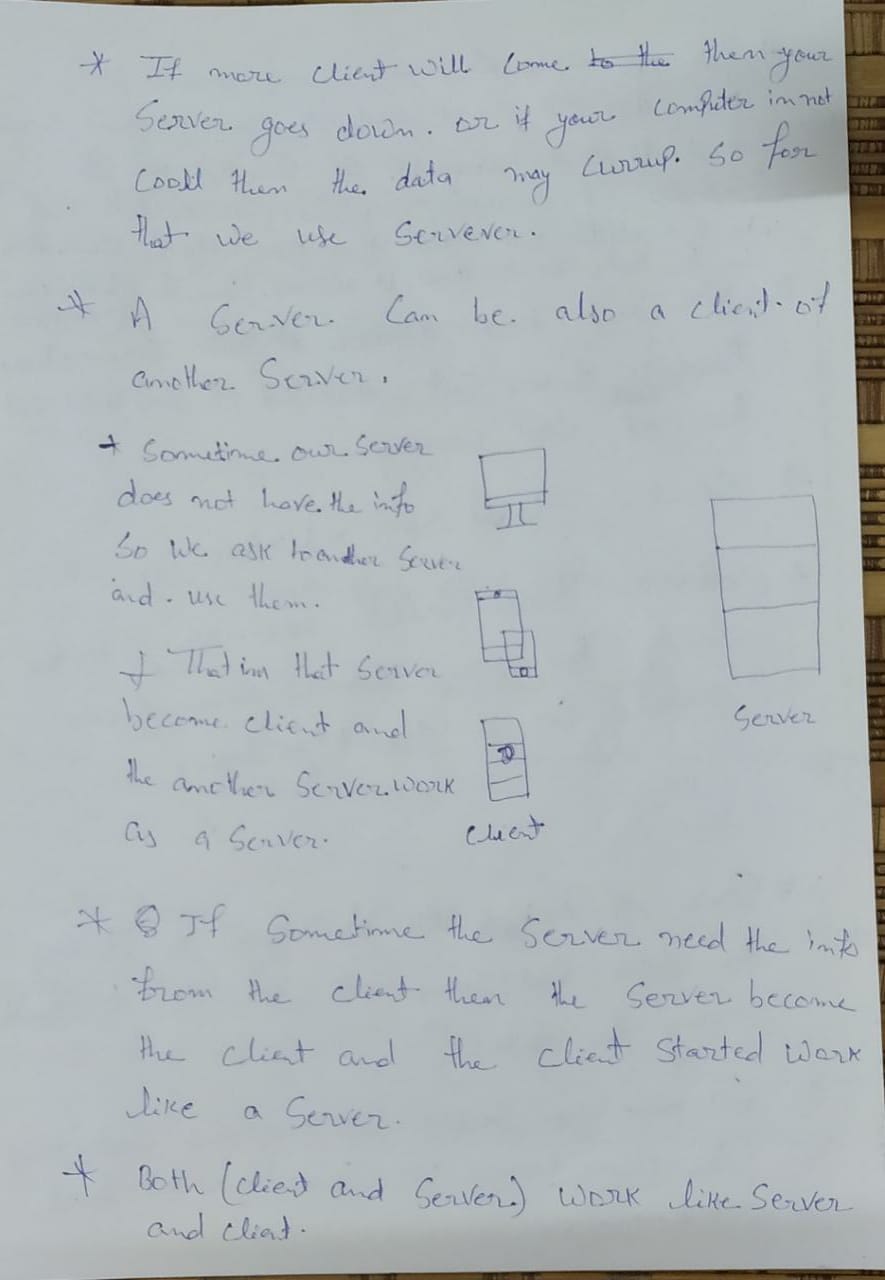 * If more client will come to the them your
Server goes down. or if your computer in not
Coold then the data may Currup. So for
that we use Servever.
* A Server can be also a client of
another Server.
* Sometime our Server
does not have the info
So We ask to another Server
and use them.
* That im that Server
become client and
the another Server work
as a Server.
Client
Server
* If Sometime the Server need the info
from the client then the Server become
the client and the client Started Work
like a Server.
* Both (client and Server) Work like Server
and client.